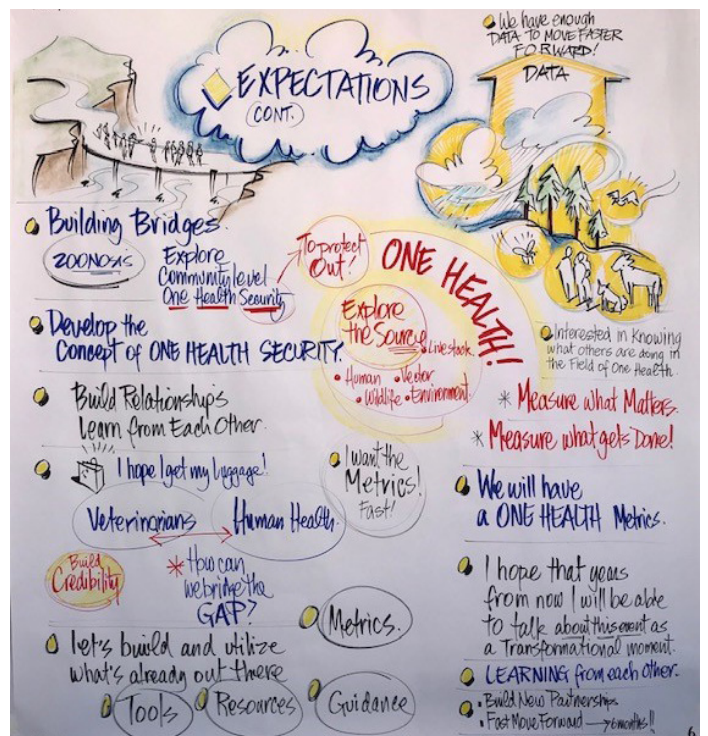 EXPECTATIONS
(CONT.)
We have enough
DATA TO MOVE FASTER
FORWARD!
DATA
Building Bridges.
ZOONOSIS
Explore
Community level
One Health Security
To protect
Out!
ONE HEALTH!
Explore
the Source
• Livestock
• Human • Vector
• Wildlife • Environment
Develop the
Concept of ONE HEALTH SECURITY.
Interested in Knowing
what others are doing in
the Field of One Health.
Build Relationships
Learn from Each Other.
* Measure what Matters.
* Measure what gets Done!
I hope I get my luggage!
I want the
Metrics!
Fast!
Veterinarians
Human Health.
We will have
a ONE HEALTH Metrics.
Build
Credibility
* How can
we bridge the
GAP?
Metrics.
I hope that years
from now I will be able
to talk about this event as
a Transformational moment.
Let's build and utilize
what's already out there
Tools
Resources
Guidance
LEARNING from each other.
• Build New Partnerships
• Fast Move Forward → 6 months!!
6